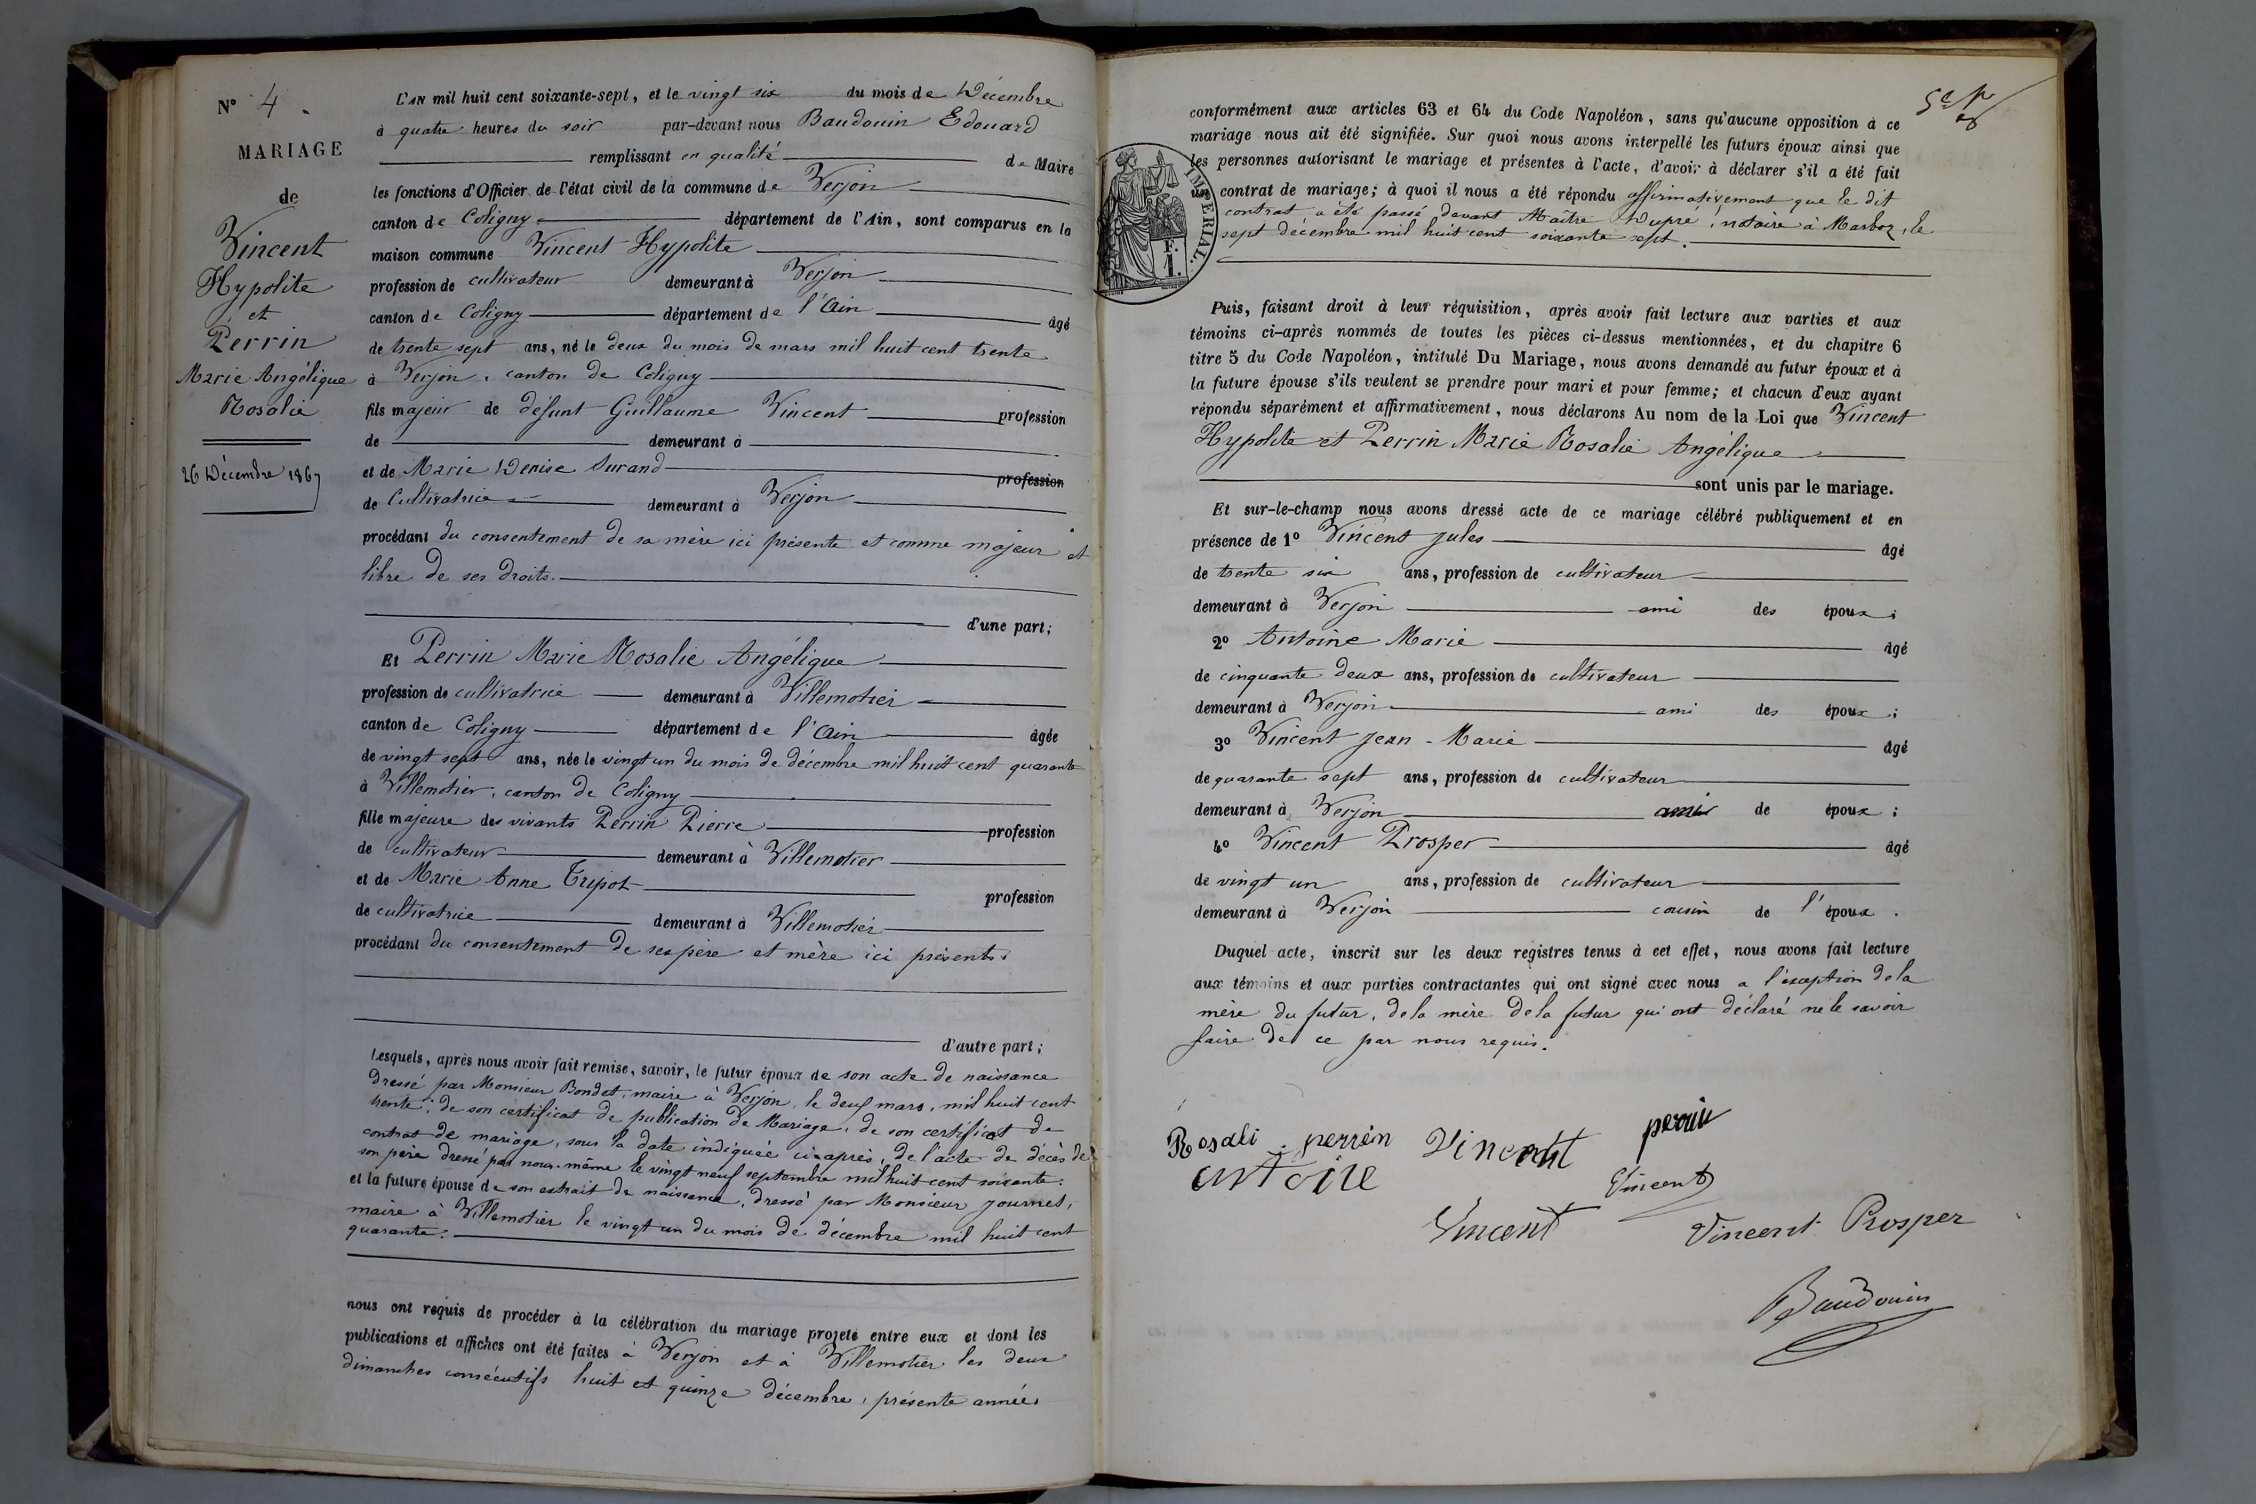 N° 4
MARIAGE
de
Vincent
Hypolite
et
Perrin
Marie Angélique
Rosalie
26 Décembre 1867
L'AN mil huit cent soixante-sept, et le vingt six du mois de Décembre
à quatre heures du soir par-devant nous Baudouin Edouard
remplissant en qualité de Maire
les fonctions d'Officier de l'état civil de la commune de Verjon
canton de Coligny département de l'Ain, sont comparus en la
maison commune Vincent Hypolite
profession de cultivateur demeurant à Verjon
canton de Coligny département de l'Ain âgé
de trente sept ans, né le deux du mois de mars mil huit cent trente
à Verjon, canton de Coligny
fils majeur de défunt Guillaume Vincent profession
de demeurant à
et de Marie Denise Surand profession
de Cultivatrice demeurant à Verjon
procédant du consentement de sa mère ici présente et comme majeur et
libre de ses droits.
d'une part;
Et Perrin Marie Rosalie Angélique
profession de cultivatrice demeurant à Villemotier
canton de Coligny département de l'Ain âgée
de vingt sept ans, née le vingt un du mois de décembre mil huit cent quarante
à Villemotier, canton de Coligny
fille majeure des vivants Perrin Pierre profession
de cultivateur demeurant à Villemotier
et de Marie Anne Tripot profession
de cultivatrice demeurant à Villemotier
procédant du consentement de ses père et mère ici présents.
d'autre part;
Lesquels, après nous avoir fait remise, savoir, le futur époux de son acte de naissance
dressé par Monsieur Bondet, maire à Verjon, le deux mars, mil huit cent
trente; de son certificat de publication de Mariage, de son certificat de
contrat de mariage, sous la date indiquée ci-après, de l'acte de décès de
son père dressé par nous-même le vingt neuf septembre mil huit cent soixante:
et la future épouse de son extrait de naissance, dressé par Monsieur Journet,
maire à Villemotier le vingt un du mois de décembre mil huit cent
quarante.
nous ont requis de procéder à la célébration du mariage projeté entre eux et dont les
publications et affiches ont été faites à Verjon et à Villemotier les deux
dimanches consécutifs huit et quinze décembre, présente année,
conformément aux articles 63 et 64 du Code Napoléon, sans qu'aucune opposition à ce
mariage nous ait été signifiée. Sur quoi nous avons interpellé les futurs époux ainsi que
les personnes autorisant le mariage et présentes à l'acte, d'avoir à déclarer s'il a été fait
contrat de mariage; à quoi il nous a été répondu affirmativement que le dit
contrat a été passé devant Maître Dupré, notaire à Marboz, le
sept décembre mil huit cent soixante sept.
IMPERIAL.
F.
1.
Puis, faisant droit à leur réquisition, après avoir fait lecture aux parties et aux
témoins ci-après nommés de toutes les pièces ci-dessus mentionnées, et du chapitre 6
titre 5 du Code Napoléon, intitulé Du Mariage, nous avons demandé au futur époux et à
la future épouse s'ils veulent se prendre pour mari et pour femme; et chacun d'eux ayant
répondu séparément et affirmativement, nous déclarons Au nom de la Loi que Vincent
Hypolite et Perrin Marie Rosalie Angélique
sont unis par le mariage.
Et sur-le-champ nous avons dressé acte de ce mariage célébré publiquement et en
présence de 1° Vincent Jules âgé
de trente six ans, profession de cultivateur
demeurant à Verjon ami des époux;
2° Antoine Marie âgé
de cinquante deux ans, profession de cultivateur
demeurant à Verjon ami des époux;
3° Vincent Jean-Marie âgé
de quarante sept ans, profession de cultivateur
demeurant à Verjon ami de époux;
4° Vincent Prosper âgé
de vingt un ans, profession de cultivateur
demeurant à Verjon cousin de l'époux.
Duquel acte, inscrit sur les deux registres tenus à cet effet, nous avons fait lecture
aux témoins et aux parties contractantes qui ont signé avec nous a l'exception de la
mère du futur, de la mère de la futur qui ont déclaré ne le savoir
faire de ce par nous requis.
Rosali perrin Vincent perrin
antoine Vincent
Vincent Vincent Prosper
Baudouin